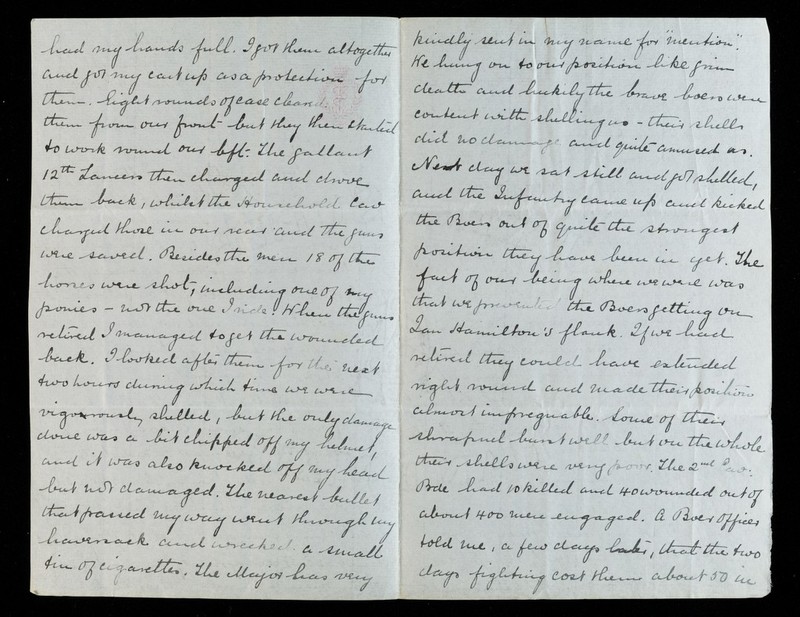 had my hands full. I got them altogether
and got my cart up as a protection for
them. Eight rounds of case cleared
them from our front but they then started
to work round our left. The gallant
12th Lancers then charged and drove
them back, whilst the Household Cav
charged those in our rear and the guns
were saved. Besides the men 18 of the
horses were shot, including one of my
ponies - not the one I ride. When the guns
retired I managed to get the wounded
back. I looked after them for the next
two hours during which time we were
vigorously shelled, but the only damage
done was a bit chipped off my helmet,
and it was also knocked off my head
but not damaged. The nearest bullet
that passed my way went through my
haversack and wrecked a small
tin of cigarettes. The Major has very
kindly sent in my name for "mention".
We hung on to our position like grim
death and luckily the brave boers were
content with shelling us - their shells
did no damage and quite amused us.
Next day we sat still and got shelled,
and the Infantry came up and kicked
the Boers out of quite the strongest
position they have been in yet. The
fact of our being where we were was
that we prevented the Boers getting on
Ian Hamilton's flank. If we had
retired they could have extended
right round and made their position
almost impregnable. Some of their
shrapnel burst well but on the whole
their shells were very poor. The 2nd Cav:
Bde had 10 killed and 40 wounded out of
about 400 men engaged. A Boer Officer
told me, a few days later, that the two
days fighting cost them about 50 in